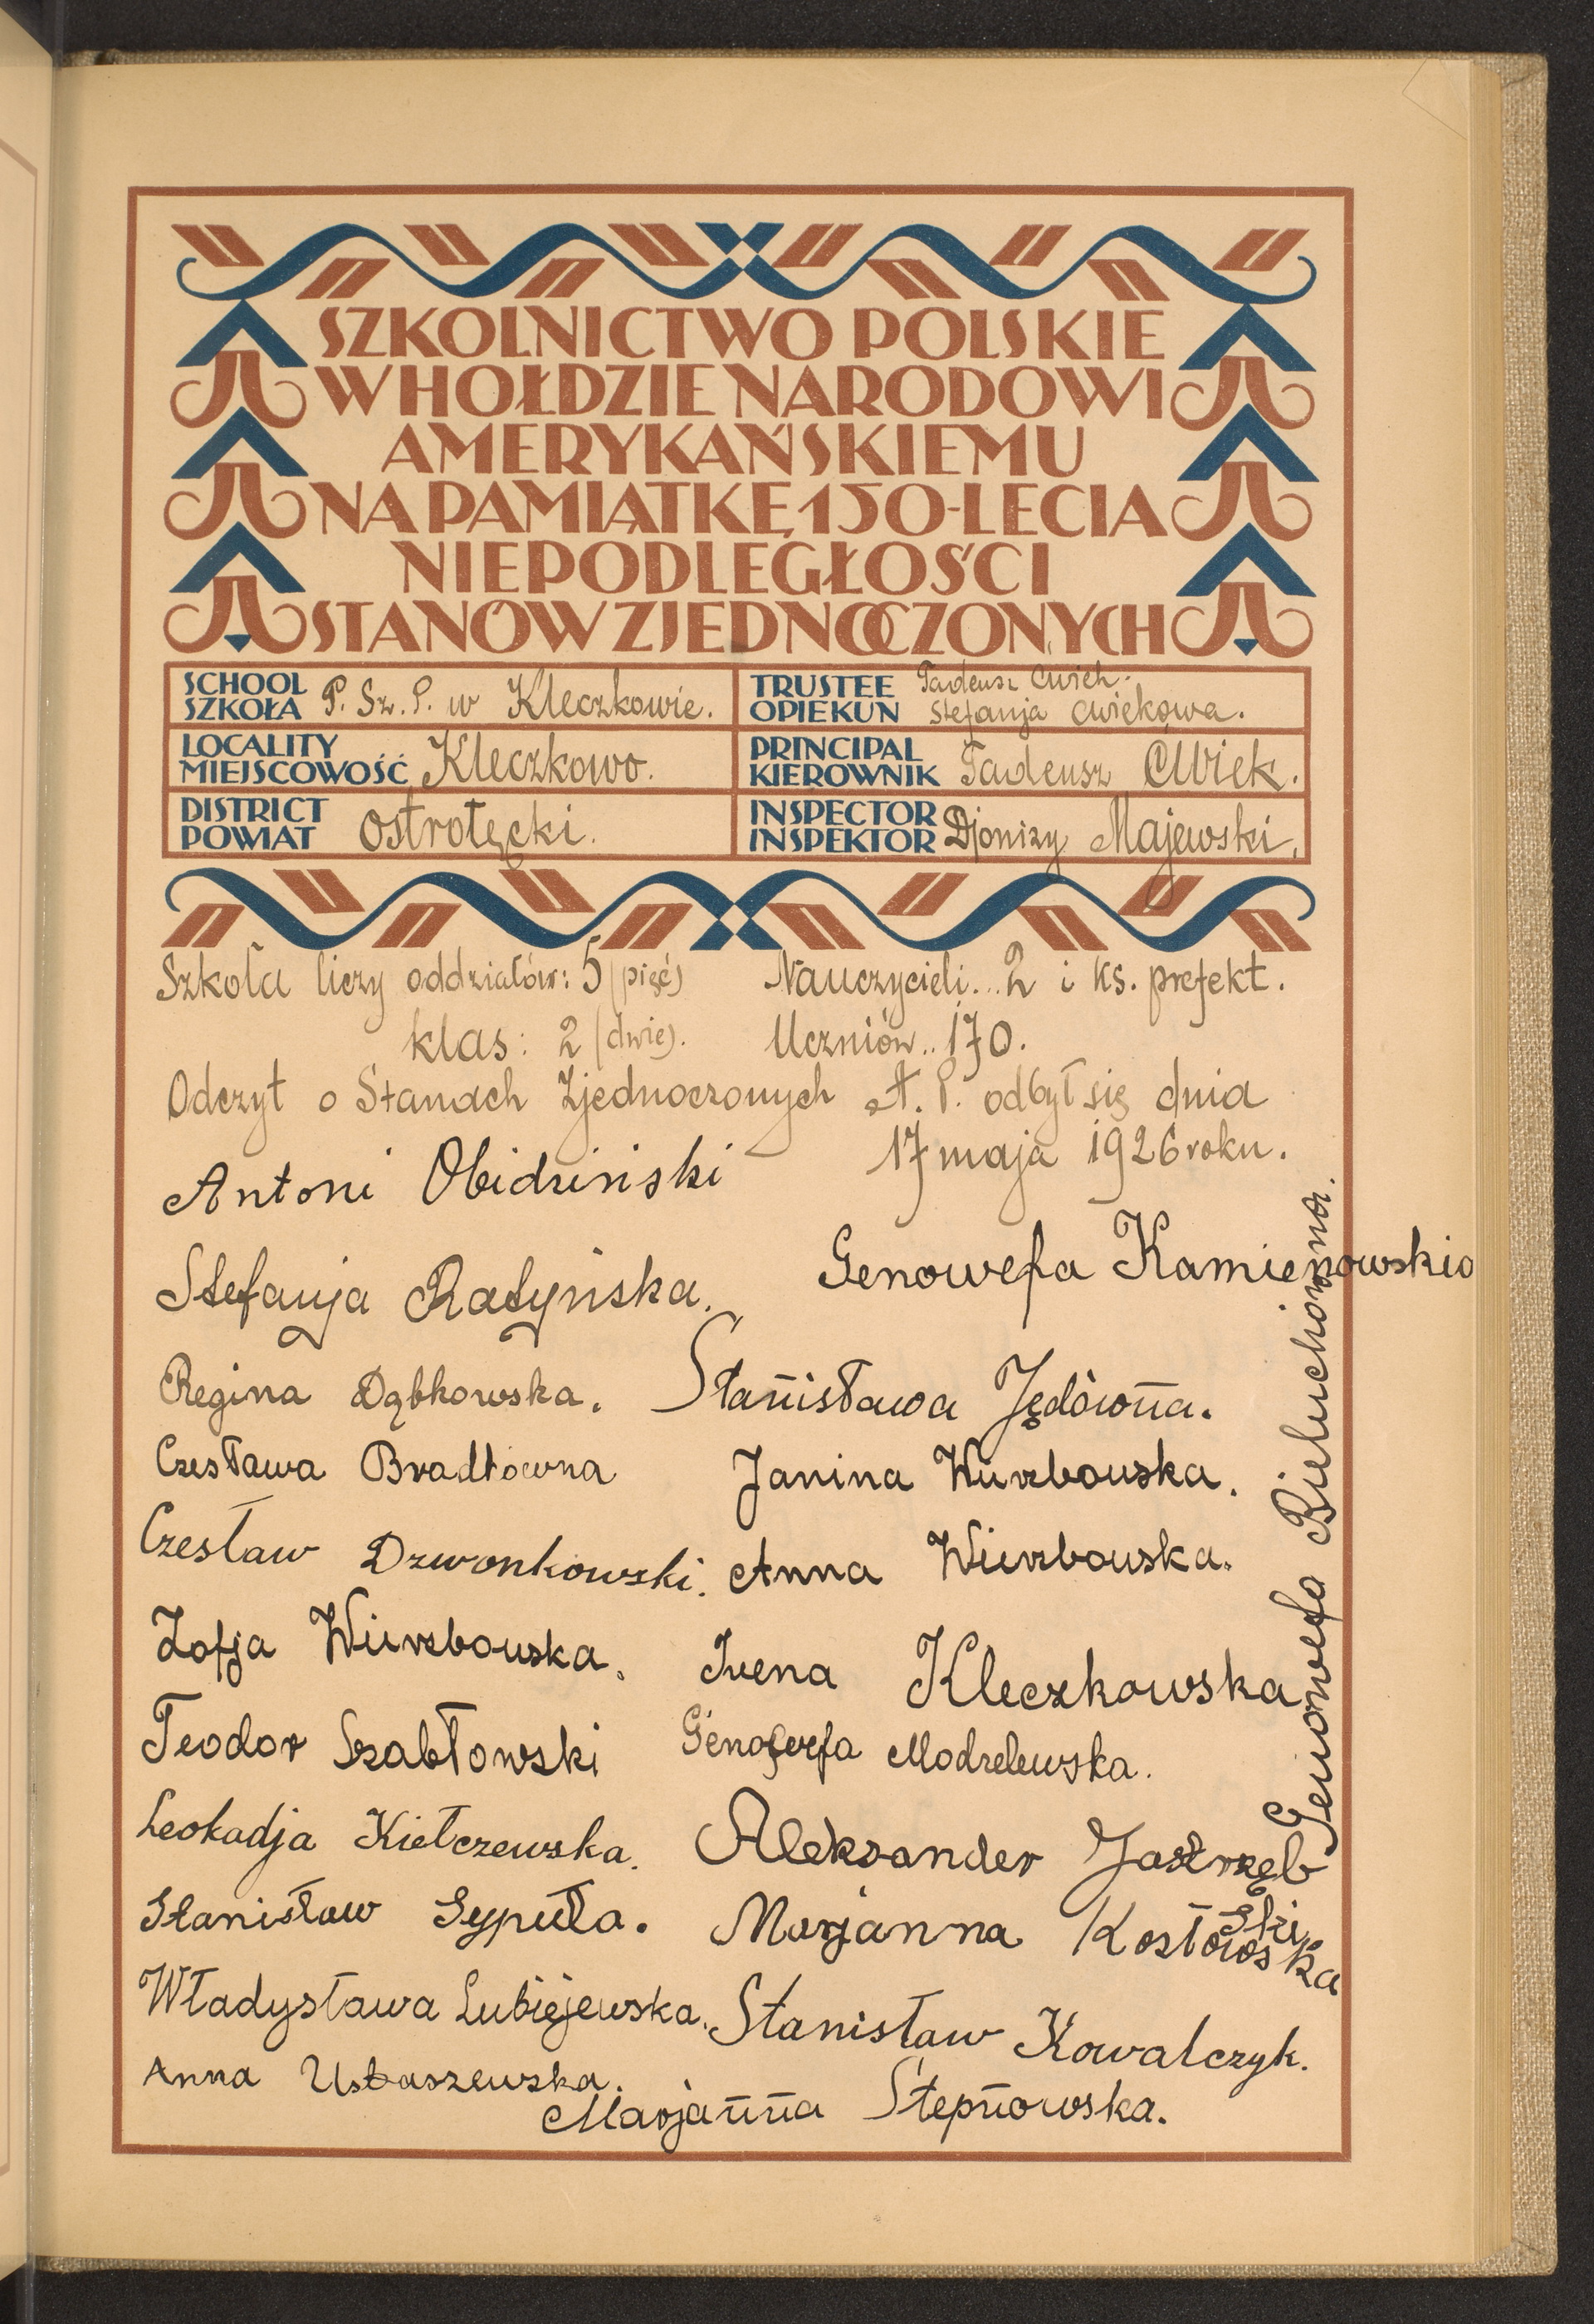 SZKOLNICTWO POLSKIE
W HOŁDZIE NARODOWI
AMERYKAŃSKIEMU
NA PAMIĄTKĘ 150-LECIA
NIEPODLEGŁOŚCI
STANÓW ZJEDNOCZONYCH
SCHOOL
SZKOŁA P. Sz. P. w Kleczkowie.
TRUSTEE Tadeusz Ćwiek.
OPIEKUN Stefanja Ćwiekowa.
LOCALITY
MIEJSCOWOŚĆ Kleczkowo.
PRINCIPAL
KIEROWNIK Tadeusz Ćwiek.
DISTRICT
POWIAT Ostrołęcki.
INSPECTOR
INSPEKTOR Djonizy Majewski.
Szkoła liczy oddziałów: 5 (pięć) Nauczycieli... 2 i ks. prefekt.
klas: 2 (dwie). Uczniów.. 170.
Odczyt o Stanach Zjednoczonych A. P. odbył się dnia
17 maja 1926 roku.
Antoni Obidziński
Genowefa Kamienowska
Stefanja Ratyńska.
Regina Dąbkowska. Stanisława Jędówna.
Czesława Bradtówna Janina Wierzbowska.
Czesław Dzwonkowski. Anna Wierzbowska.
Zofja Wierzbowska. Irena Kleczkowska
Teodor Szabłowski Genowefa Modzelewska.
Leokadja Kiełczewska. Aleksander Jastrzębski
Stanisław Sypuła. Marjanna Kozłowska
Władysława Lubiejewska. Stanisław Kowalczyk.
Anna Ustaszewska.
Marjanna Stepnowska.
Genowefa Bieluchówna.